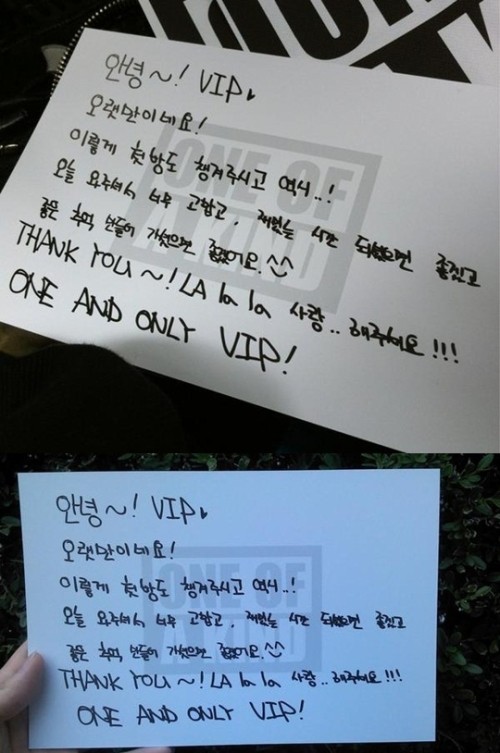 안녕~! VIP♥
오랫만이네요!
이렇게 첫방도 챙겨주시고 역시..!
오늘 와주셔서 너무 고맙고, 재밌는 시간 되셨으면 좋겠고
좋은 추억 만들어 가셨으면 좋겠어요.^^
THANK YOU ~! LA la la 사랑.. 해주세요!!!
ONE AND ONLY VIP!
ONE OF
A KIND
안녕~! VIP♥
오랫만이네요!
이렇게 첫방도 챙겨주시고 역시..!
오늘 와주셔서 너무 고맙고, 재밌는 시간 되셨으면 좋겠고
좋은 추억 만들어 가셨으면 좋겠어요.^^
THANK YOU ~! LA la la 사랑.. 해주세요!!!
ONE AND ONLY VIP!
ONE OF
A KIND